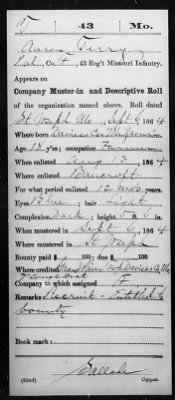 T 43 Mo.
Aaron Terry
Pvt., Co. F, 43 Reg't Missouri Infantry.
Appears on
Company Muster-in and Descriptive Roll
of the organization named above. Roll dated
St Joseph Mo Sept 6, 1864
Where born Daviess Co Missouri
Age 18 y'rs; occupation Farmer
When enlisted Aug 13, 1864
Where enlisted Bancroft
For what period enlisted 12 mos years.
Eyes Blue; hair Light
Complexion Dark; height 5 ft. 6 in.
When mustered in Sept 6, 1864
Where mustered in St Joseph
Bounty paid $ 100; due $ 100
Where credited Daviess Co Mo
7" Cong Dist
Company to which assigned F
Remarks: Recruit - Entitled to
bounty
Book mark:
(334d) Copyist.